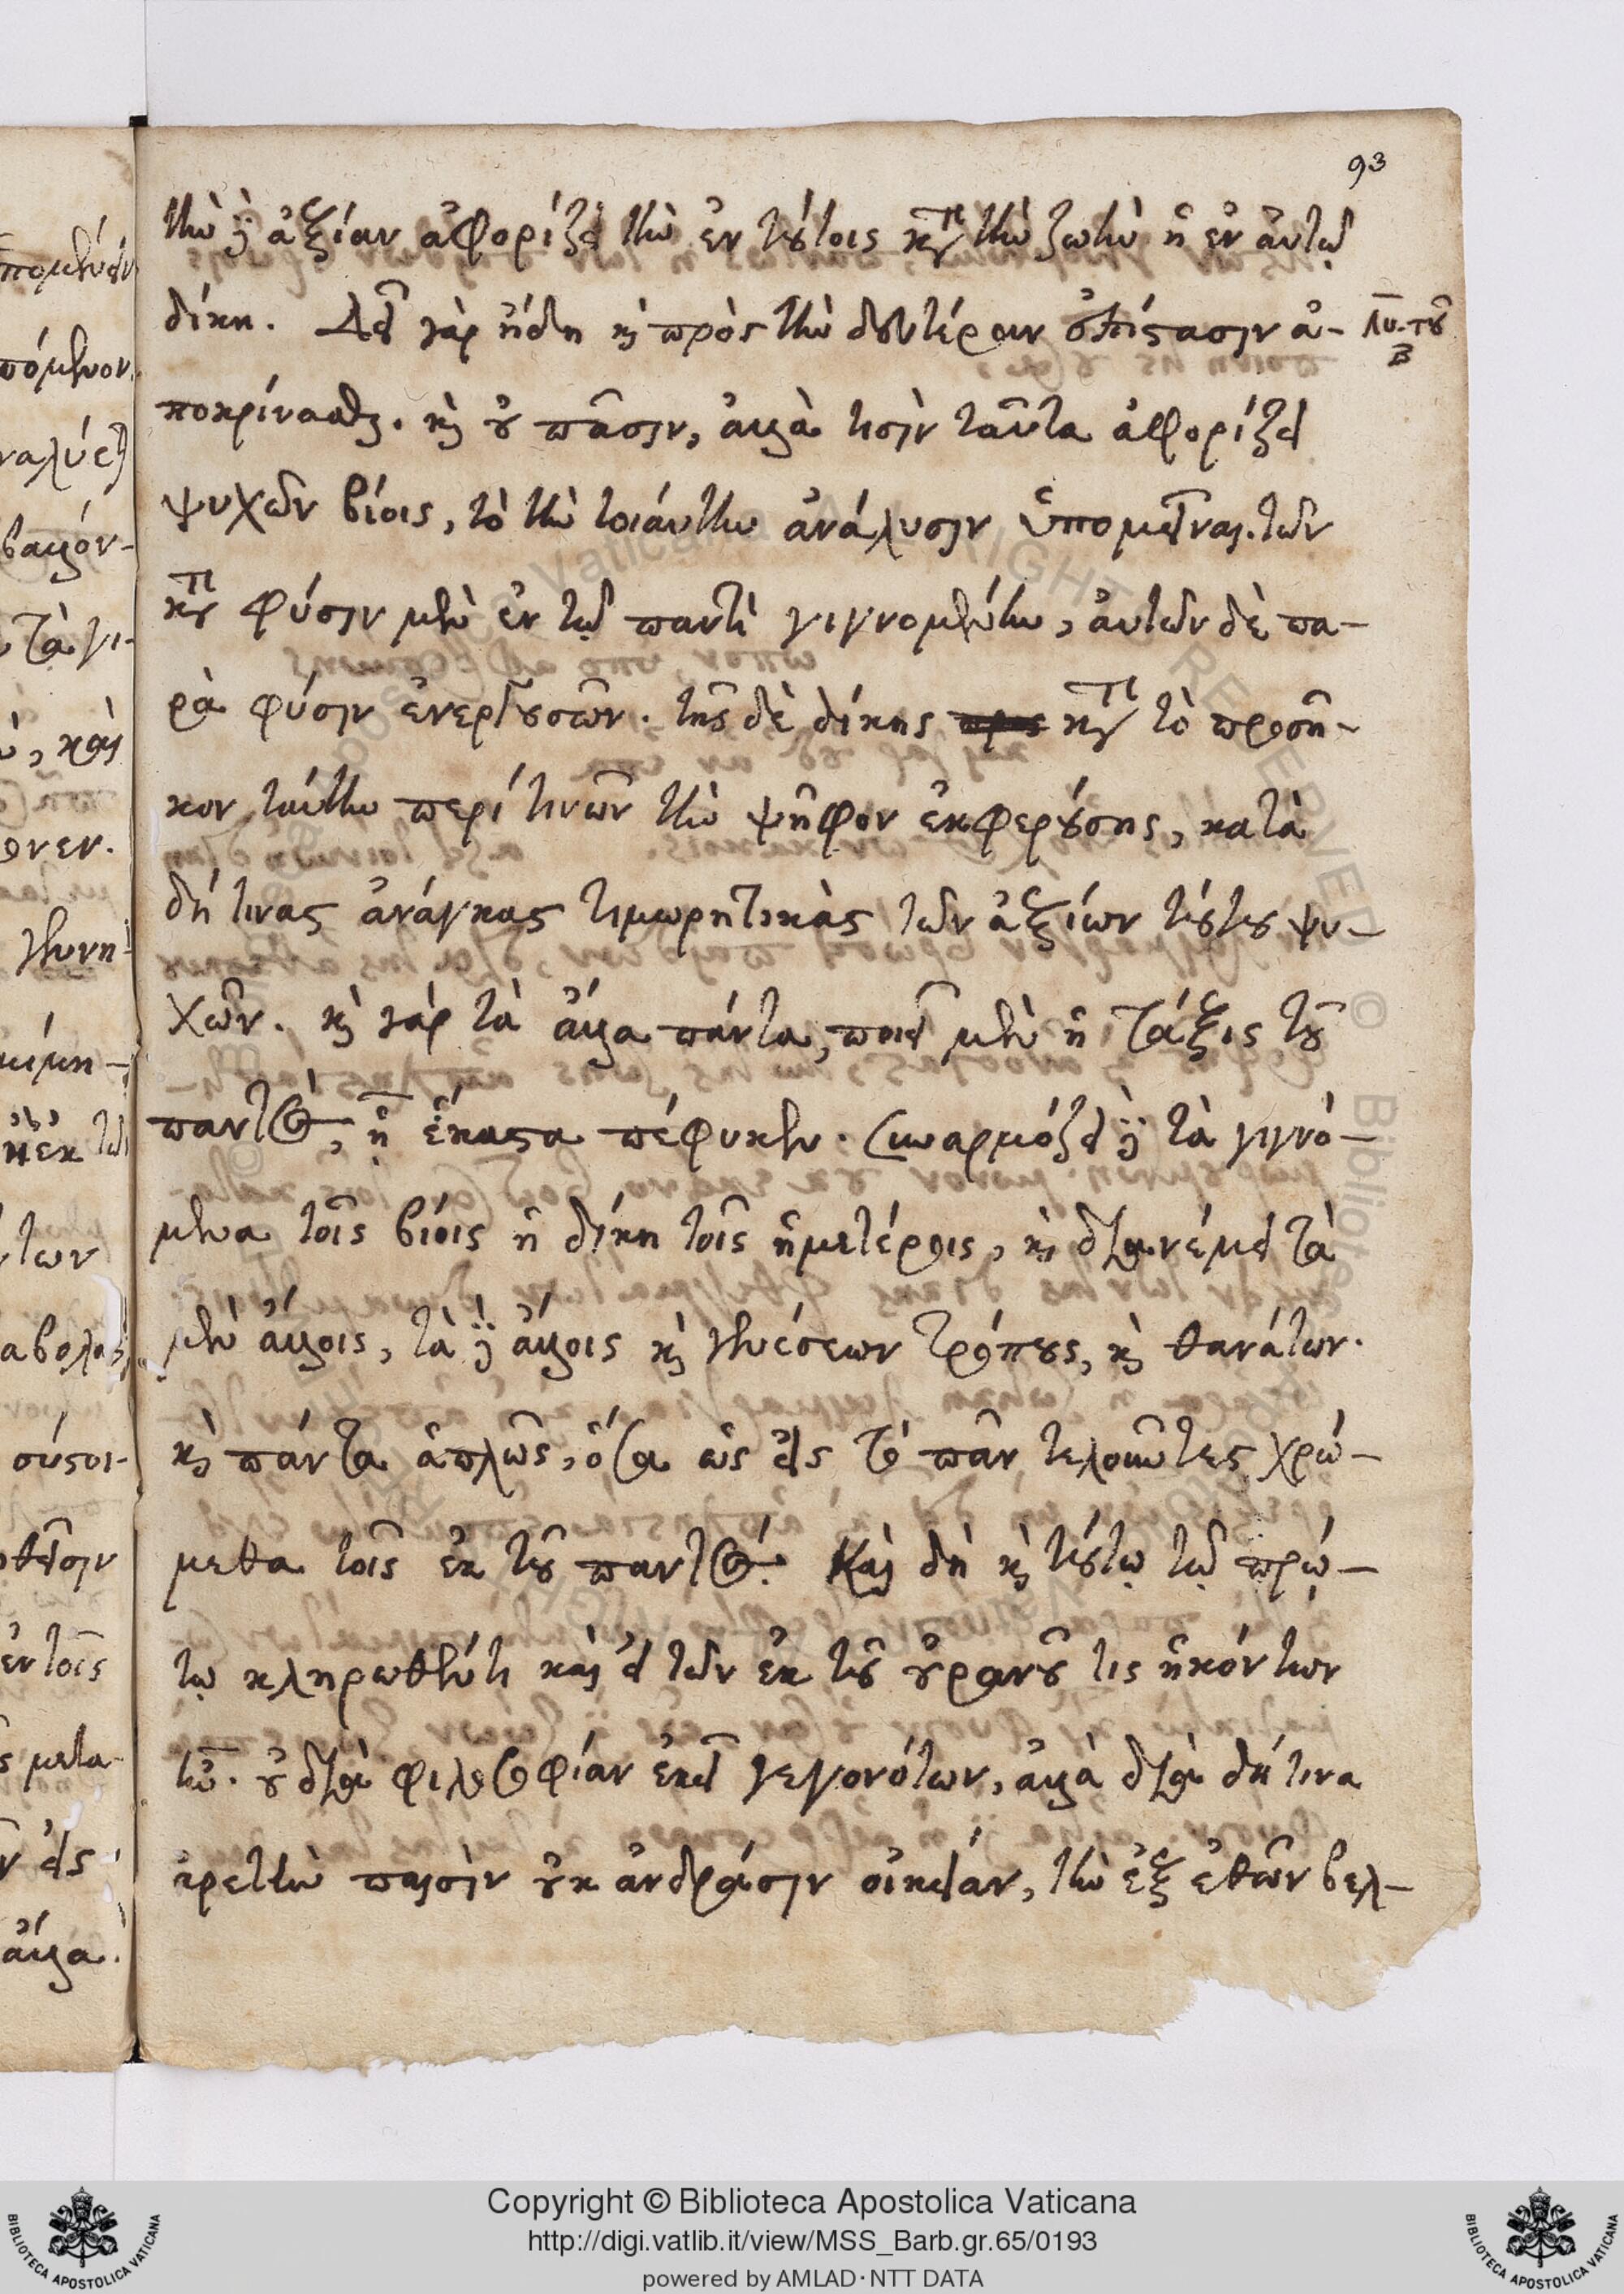 93
τὴν δὲ ἀξίαν ἀφορίζει τὴν ἐν τούτοις κατὰ τὴν ζωὴν ἡ ἐν αὐτῷ
δίκη. Δεῖ γὰρ ἤδη καὶ πρὸς τὴν δευτέραν ἐπίστασιν ἀ- λύ. τοῦ
β
ποκρίνασθαι. καὶ οὐ πᾶσιν, ἀλλὰ τισὶν ταῦτα ἀφορίζει
ψυχῶν βίοις, τὸ τὴν τοιαύτην ἀνάλυσιν ὑπομεῖναι. τῶν
κατὰ φύσιν μὲν ἐν τῷ παντὶ γιγνομένην, αὐτῶν δὲ πα-
ρὰ φύσιν ἐνεργουσῶν. τῆς δὲ δίκης κατὰ τὸ προσῆ-
κον ταύτην περί τινῶν τὴν ψῆφον ἐκφερούσης, κατὰ
δή τινας ἀνάγκας τιμωρητικὰς τῶν ἀξίων τούτου ψυ-
χῶν. καὶ γὰρ τὰ ἄλλα πάντα, ποιεῖ μὲν ἡ τάξις τοῦ
παντός, ᾗ ἕκαστα πέφυκεν. συναρμόζει δὲ τὰ γιγνό-
μενα τοῖς βίοις ἡ δίκη τοῖς ἡμετέροις, καὶ διανέμει τὰ
μὲν ἄλλοις, τὰ δὲ ἄλλοις καὶ γενέσεων τρόπους, καὶ θανάτων.
καὶ πάντα ἁπλῶς, ὅσα ὡς εἰς τὸ πᾶν τελοῦντες χρώ-
μεθα τοῖς ἐκ τοῦ παντός. Καὶ δὴ καὶ τούτῳ τῷ πρώ-
τῳ κληρωθέντι καὶ εἰ τῶν ἐκ τοῦ οὐρανοῦ τις ἡκόντων
ἦν. οὐ διὰ φιλοσοφίαν ἐκεῖ γεγονότων, ἀλλὰ διὰ δή τινα
ἀρετὴν παισὶν οὐκ ἀνδράσιν οἰκείαν, τὴν ἐξ ἐθῶν βελ-
Copyright © Biblioteca Apostolica Vaticana
http://digi.vatlib.it/view/MSS_Barb.gr.65/0193
powered by AMLAD·NTT DATA